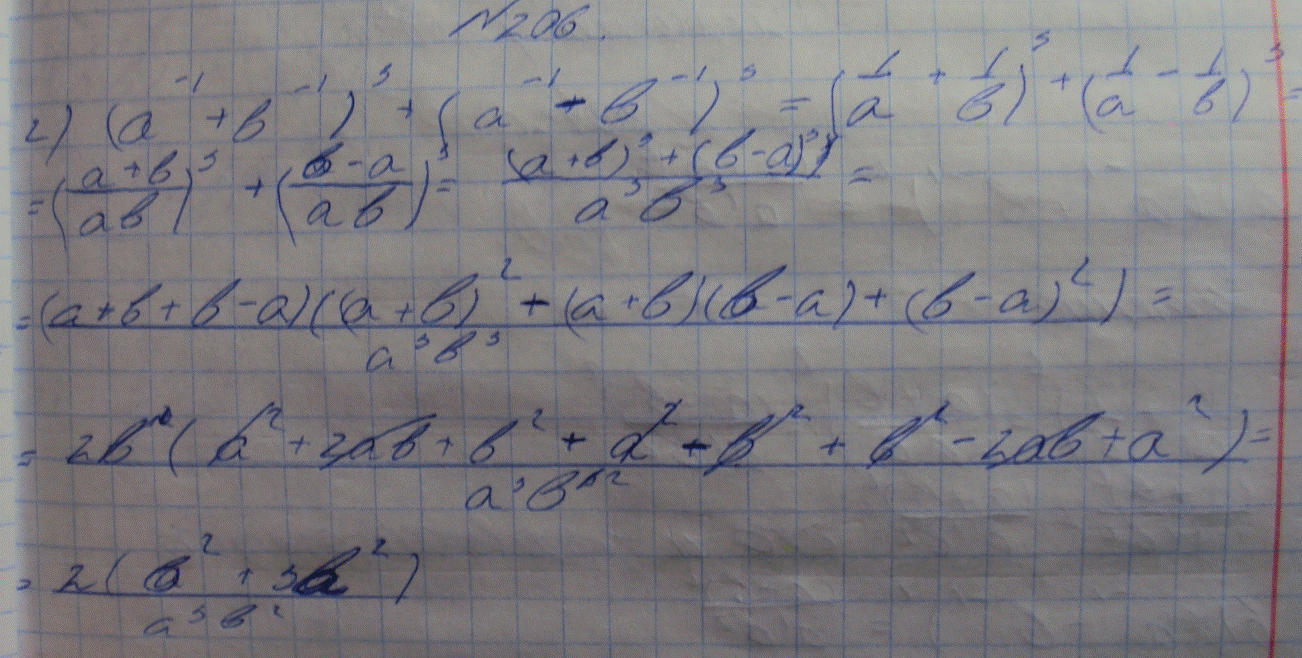 N206.
2) (a⁻¹ + b⁻¹)³ + (a⁻¹ - b⁻¹)³ = (1/a + 1/b)³ + (1/a - 1/b)³ =
= ((a+b)/(ab))³ + ((b-a)/(ab))³ = ((a+b)³ + (b-a)³)/(a³b³) =
= (a+b+b-a)((a+b)² - (a+b)(b-a) + (b-a)²)/(a³b³) =
= 2b(a² + 2ab + b² + a² - b² + b² - 2ab + a²)/(a³b²) =
= 2(b² + 3a²)/(a³b²)